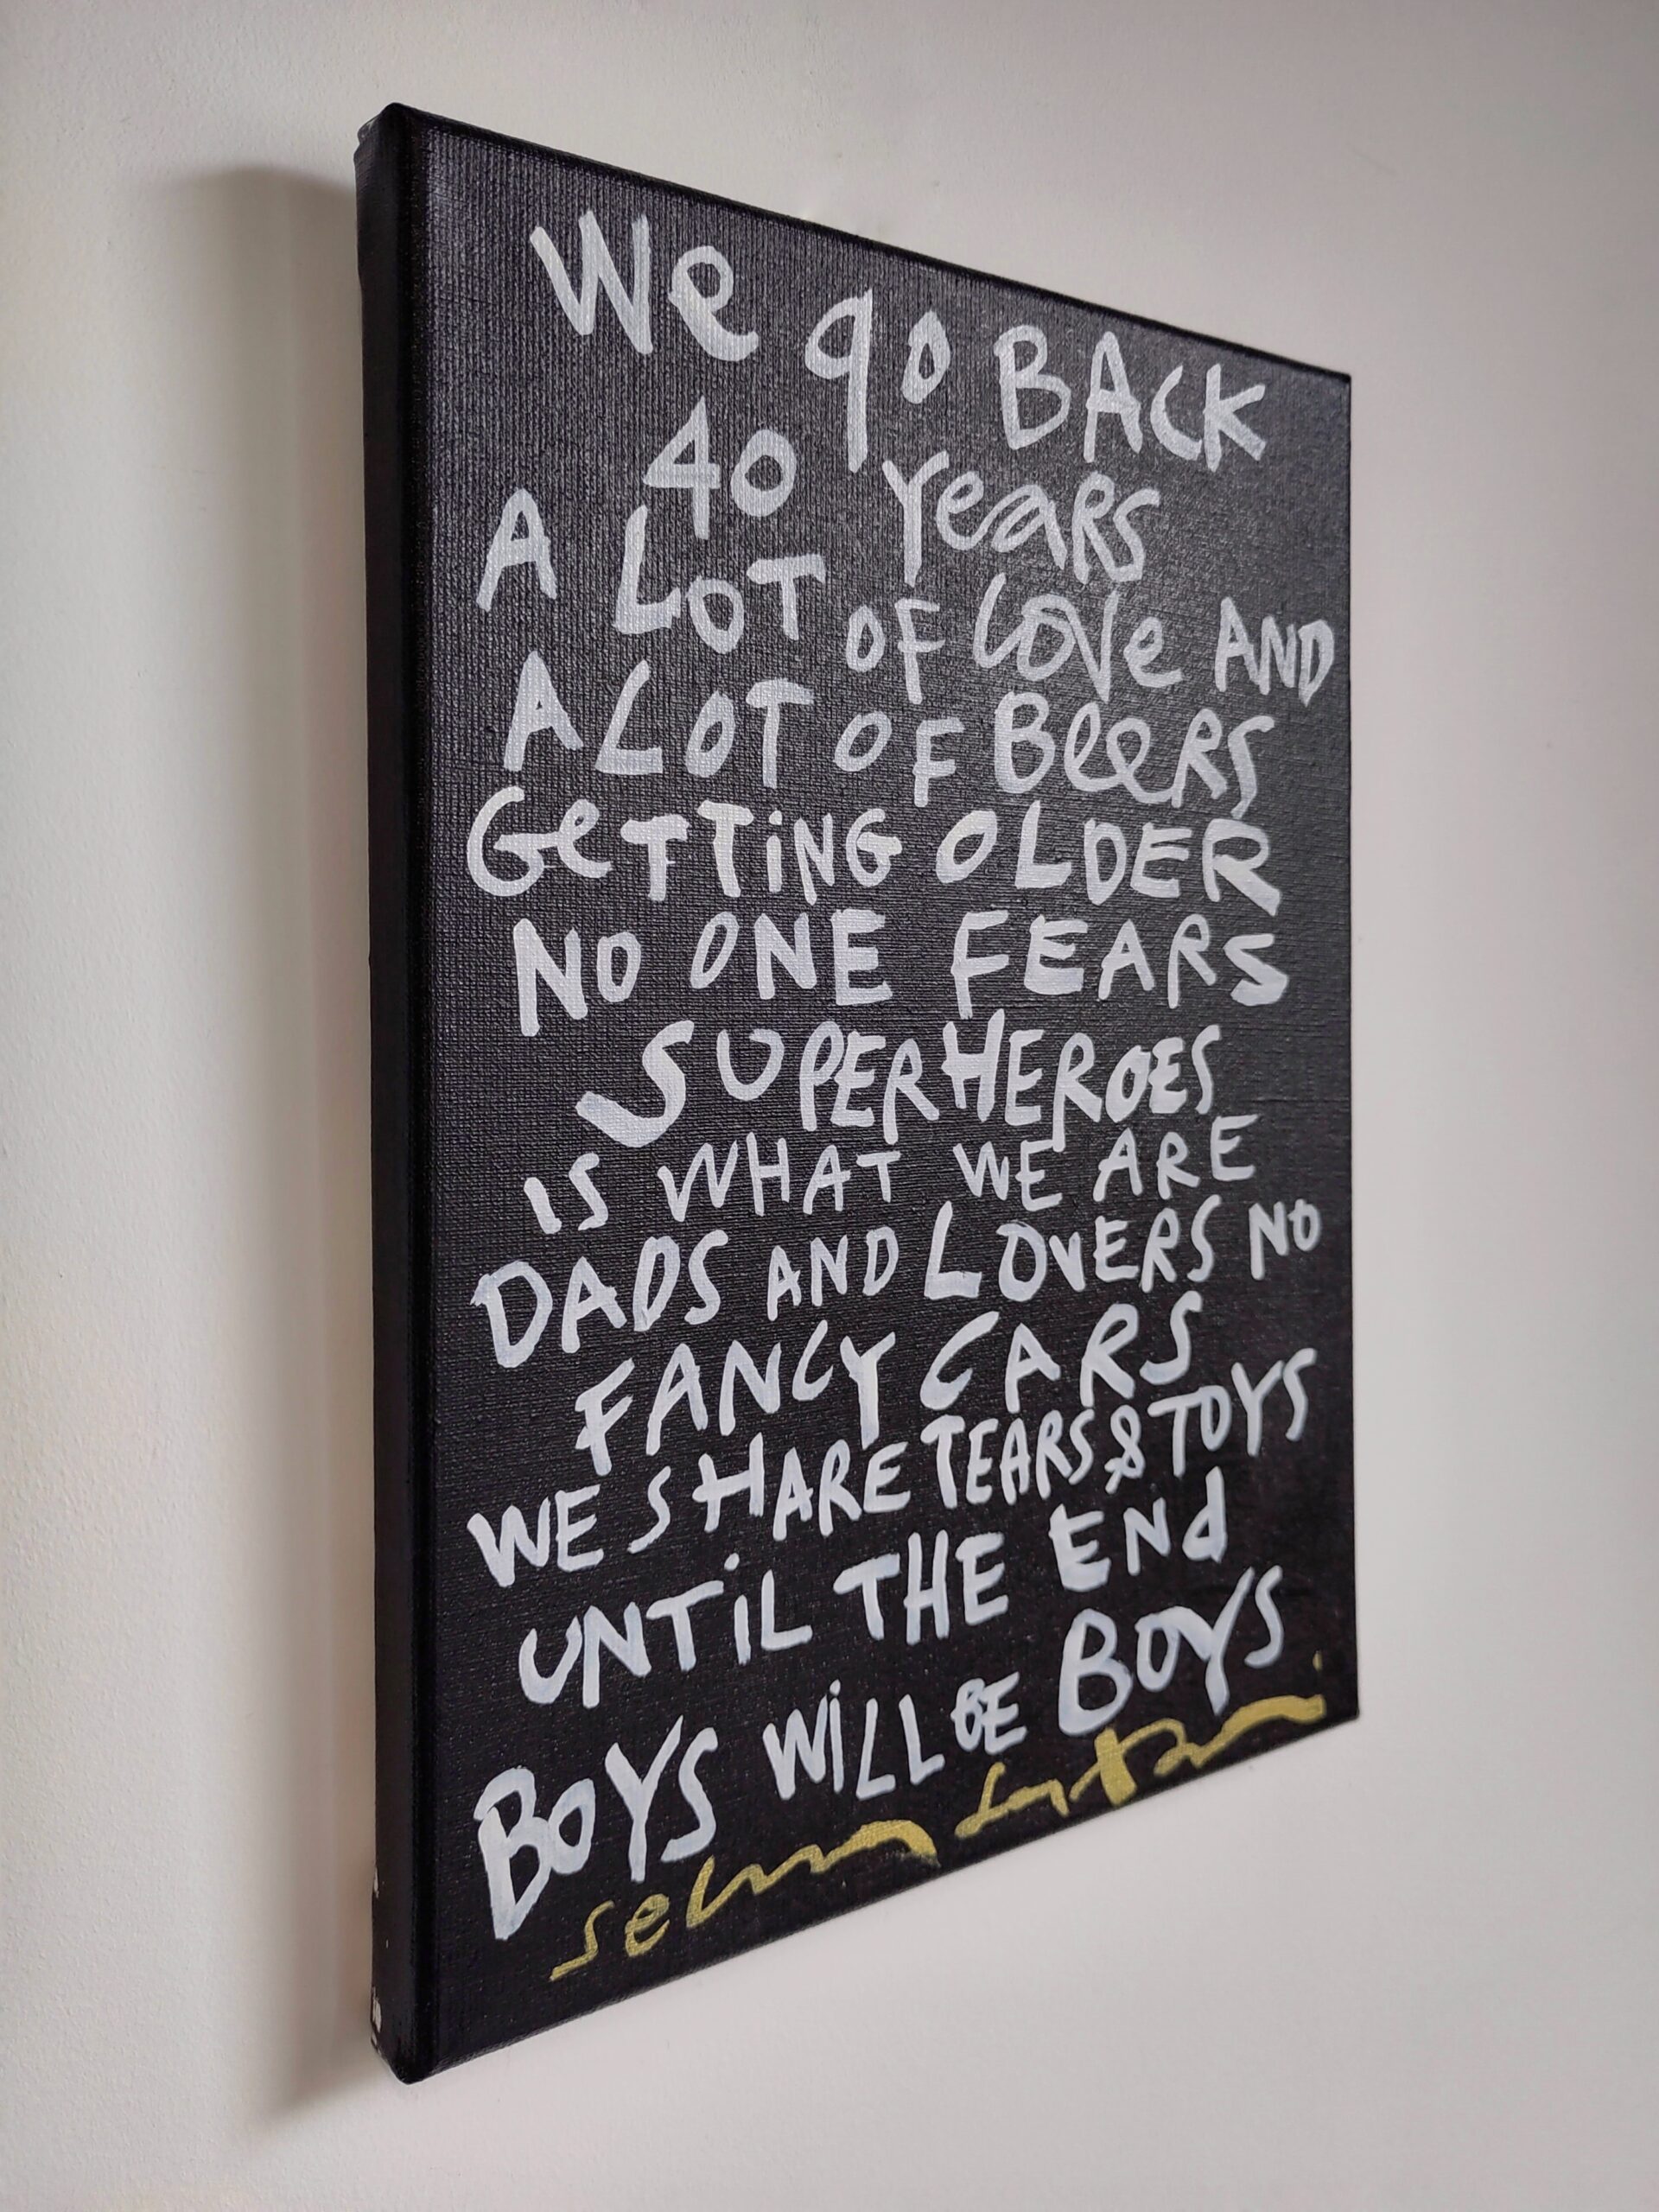 We go BACK
40 YeaRS
A LOT OF LOVe AND
A LOT OF BeeRS
GeTTiNG OLDER
NO ONE FEARS
SUPERHEROES
IS WHAT WE ARE
DADS AND LOVERS NO
FANCY CARS
WE SHARE TEARS & TOYS
UNTiL THE ENd
BOYS WiLL BE BOYS